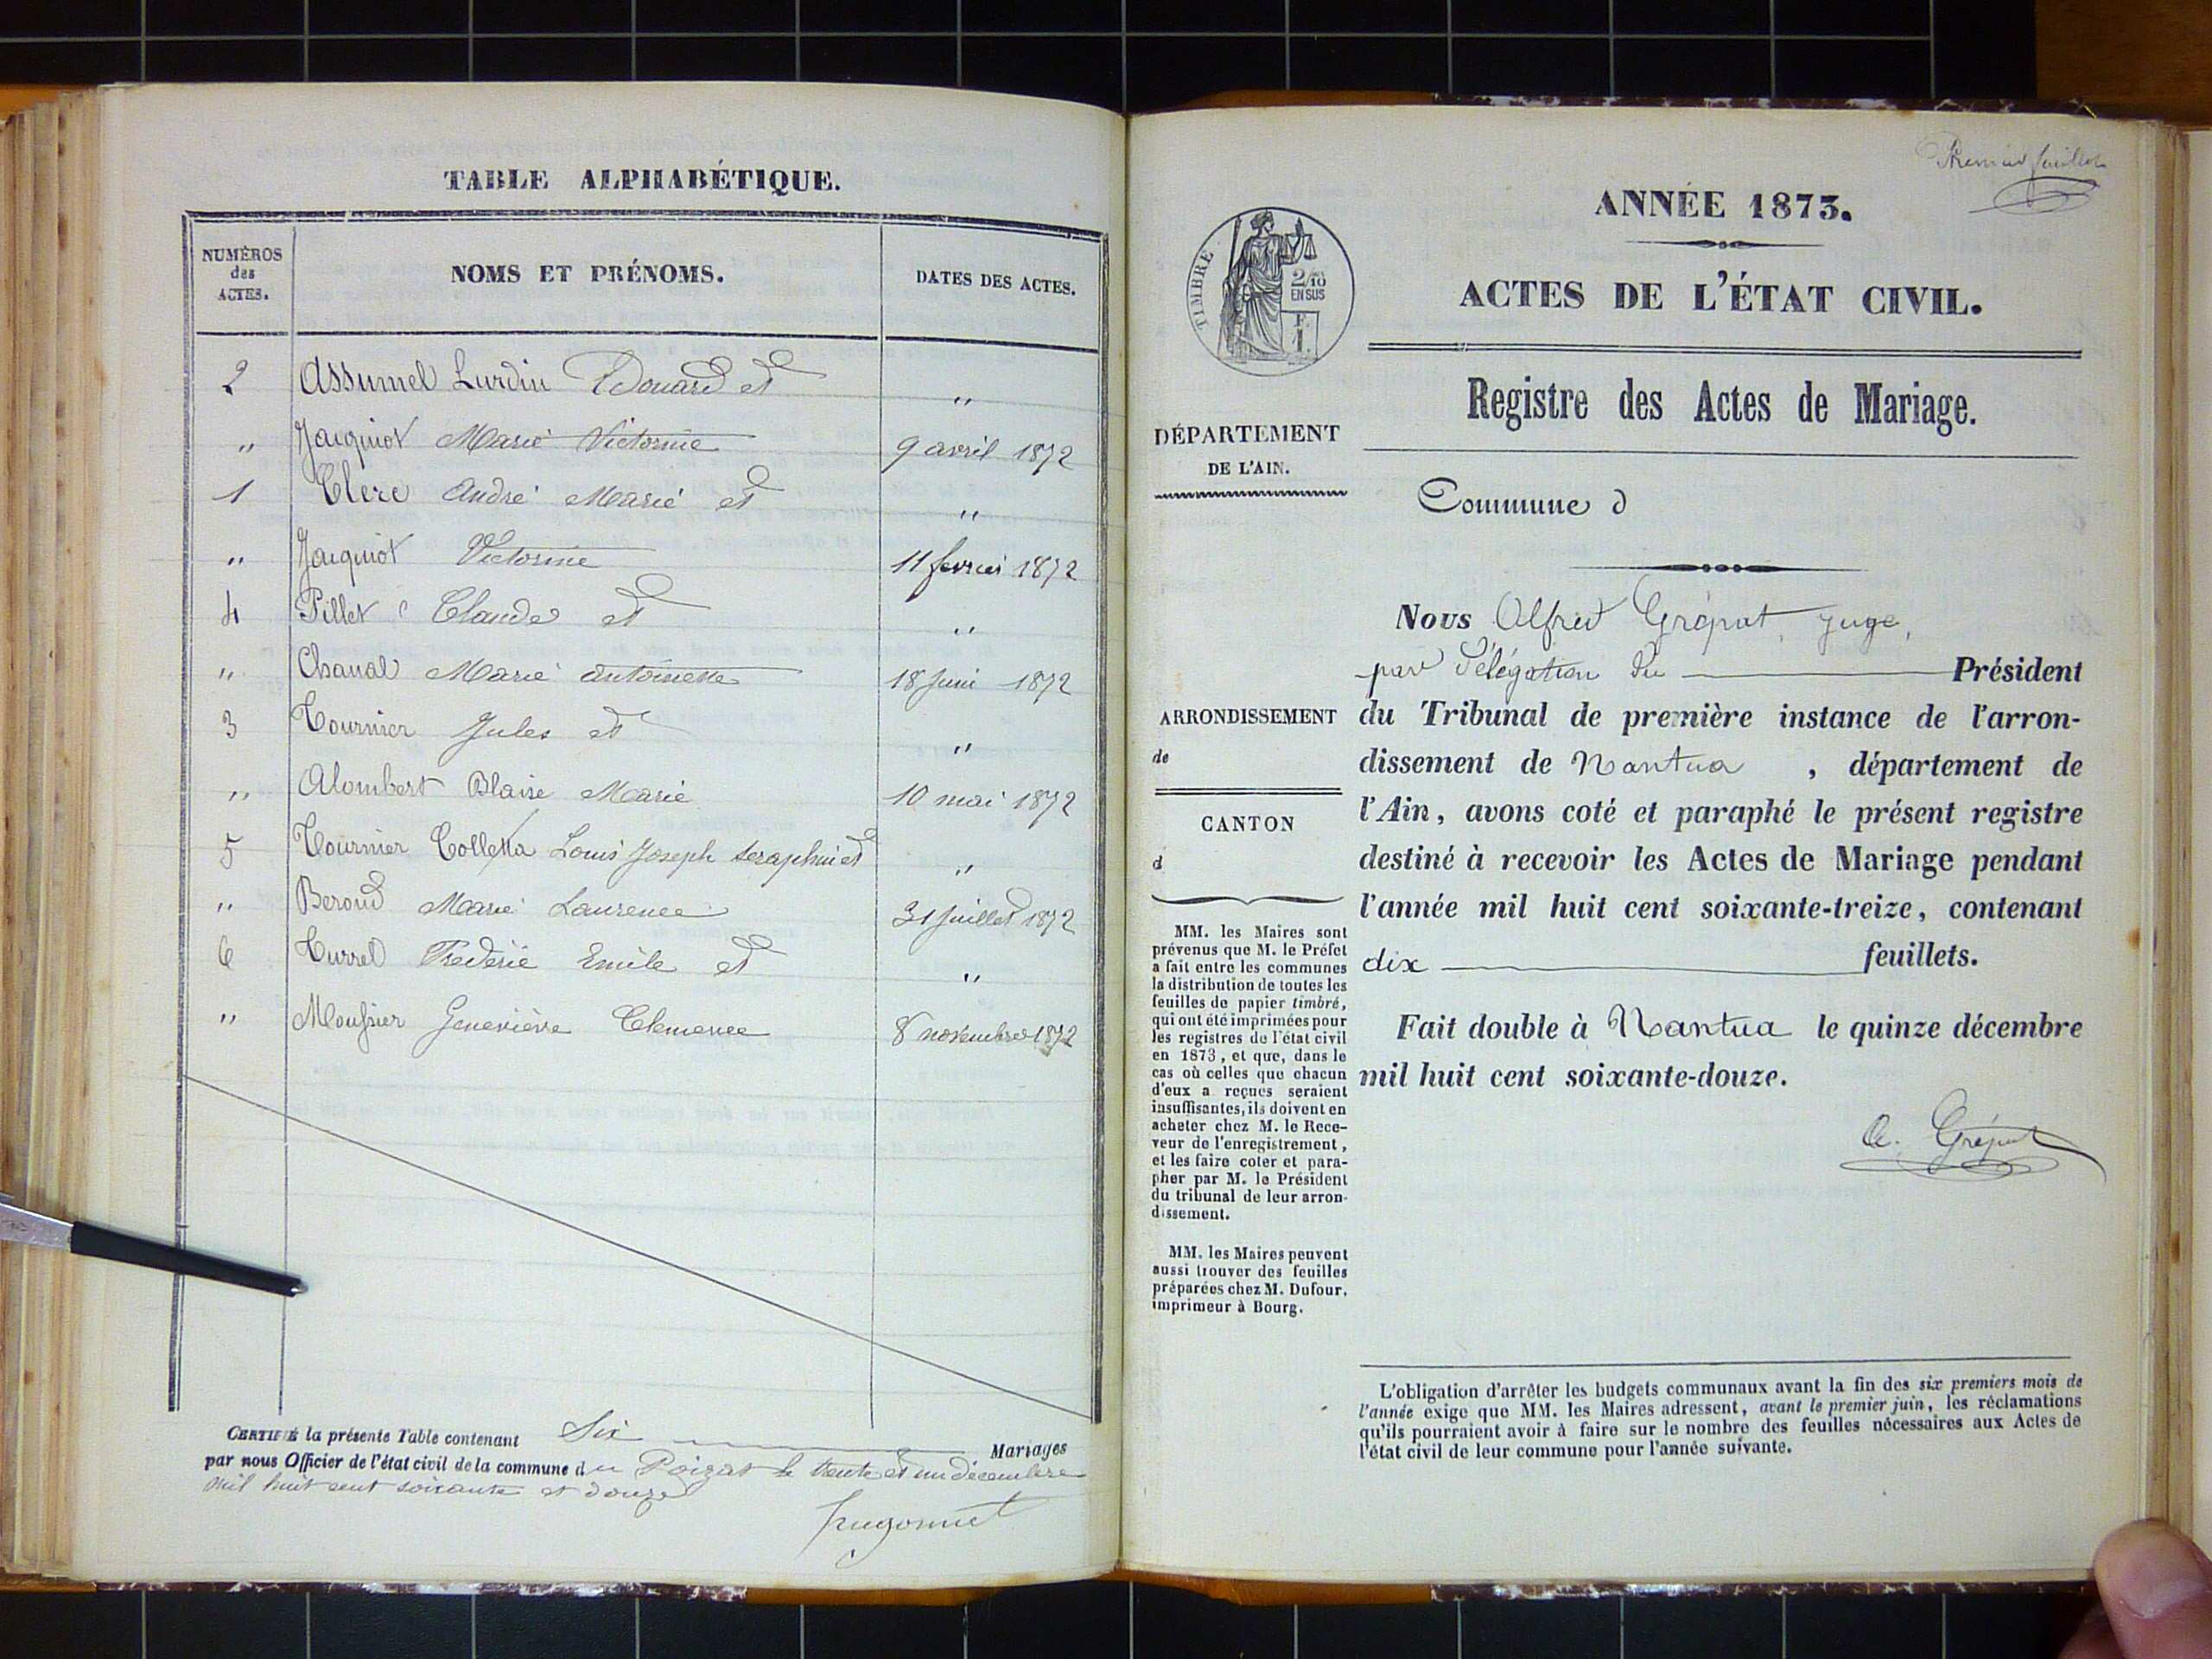 TABLE ALPHABÉTIQUE.
NUMÉROS des ACTES.
NOMS ET PRÉNOMS.
DATES DES ACTES.
2 Assumel Lurdin Edouard et "
" Jacquiot Marie Victorine 9 avril 1872
1 Clerc André Marie et "
" Jacquiot Victorine 11 fevrier 1872
4 Pillet Claude et "
" Chanal Marie antoinette 18 juin 1872
3 Tournier Jules et "
" Alombert Blaise Marie 10 mai 1872
5 Tournier Colletta Louis Joseph Seraphin et "
" Beroud Marie Laurence 31 juillet 1872
6 Turrel Frederic Emile et "
" Moussier Geneviève Clemence 8 novembre 1872
CERTIFIÉ la présente Table contenant Six Mariages
par nous Officier de l'état civil de la commune du Poizat le trente et un décembre
mil huit cent soixante et douze
Hugonnet
Premier feuillet
ANNÉE 1873.
ACTES DE L'ÉTAT CIVIL.
TIMBRE
2/10
EN SUS
F.
1.
Registre des Actes de Mariage.
DÉPARTEMENT
DE L'AIN.
Commune d
Nous Alfred Grépat, juge,
par délégation du Président
ARRONDISSEMENT
de
du Tribunal de première instance de l'arron-
dissement de Nantua , département de
l'Ain, avons coté et paraphé le présent registre
destiné à recevoir les Actes de Mariage pendant
l'année mil huit cent soixante-treize, contenant
dix feuillets.
Fait double à Nantua le quinze décembre
mil huit cent soixante-douze.
A. Grépat
CANTON
d
MM. les Maires sont
prévenus que M. le Préfet
a fait entre les communes
la distribution de toutes les
feuilles de papier timbré,
qui ont été imprimées pour
les registres de l'état civil
en 1873, et que, dans le
cas où celles que chacun
d'eux a reçues seraient
insuffisantes, ils doivent en
acheter chez M. le Rece-
veur de l'enregistrement,
et les faire coter et para-
pher par M. le Président
du tribunal de leur arron-
dissement.
MM. les Maires peuvent
aussi trouver des feuilles
préparées chez M. Dufour,
imprimeur à Bourg.
L'obligation d'arrêter les budgets communaux avant la fin des six premiers mois de
l'année exige que MM. les Maires adressent, avant le premier juin, les réclamations
qu'ils pourraient avoir à faire sur le nombre des feuilles nécessaires aux Actes de
l'état civil de leur commune pour l'année suivante.